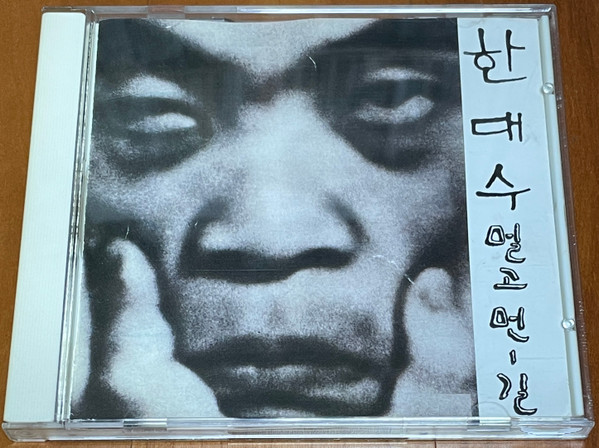 한대수
멀고먼-길